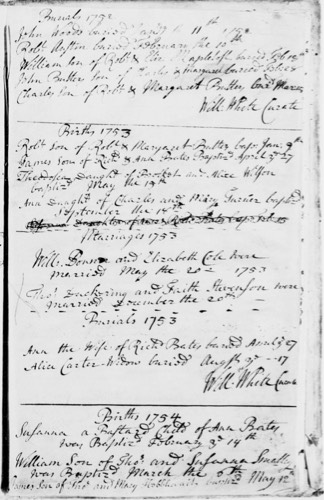 Burials 1752
John Woods buried 11th
Robt buried February the 10th
William Son of Robt & buried Feb 12
John Butter Son of & Margaret buried
Charles Son of Robt & Margaret Butter bur March
Will White Curate
Births 1753
Robt Son of Robt & Margaret Butter bap Jan 9th
James Son of Richd & Ann Bates Baptiz'd April ye 27
Theodosia Daught of and Alice Wilson
baptiz'd May the 19th
Ann Daught of Charles and Mary Turner bapt'd
September the
Daughter of
Marriages 1753
Will: Bonner and Elizabeth Cole were
married May the 20 - 1753
Tho: Duckering and Faith Stevenson were
Married December the 20th
Burials 1753
Ann the Wife of Richd Bates buried April ye 27
Alice Carter Widow buried Augst ye 17
Will: White Curate
Births 1754
Susanna a Bastard Child of Ann Bates
was Baptiz'd February ye 14th
William Son of Tho: and Susanna Small
was Baptiz'd March the 9th
James Son of Tho: and Mary baptiz'd May 12th